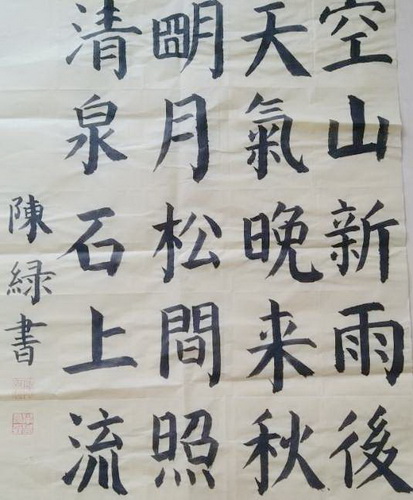 空山新雨後
天氣晚来秋
明月松間照
清泉石上流
陳緑書